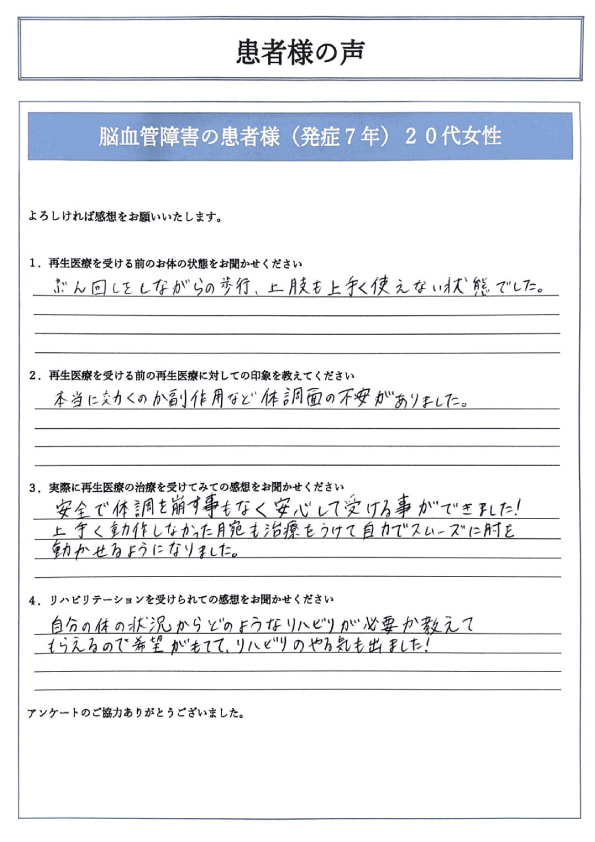 患者様の声
脳血管障害の患者様（発症７年）２０代女性
よろしければ感想をお願いいたします。
１．再生医療を受ける前のお体の状態をお聞かせください
ぶん回しをしながらの歩行、上肢も上手く使えない状態でした。
２．再生医療を受ける前の再生医療に対しての印象を教えてください
本当に効くのか副作用など体調面の不安がありました。
３．実際に再生医療の治療を受けてみての感想をお聞かせください
安全で体調を崩す事もなく安心して受ける事ができました！
上手く動作しなかった腕も治療をうけて自力でスムーズに肘を
動かせるようになりました。
４．リハビリテーションを受けられての感想をお聞かせください
自分の体の状況からどのようなリハビリが必要か教えて
もらえるので希望がもてて、リハビリのやる気も出ました！
アンケートのご協力ありがとうございました。